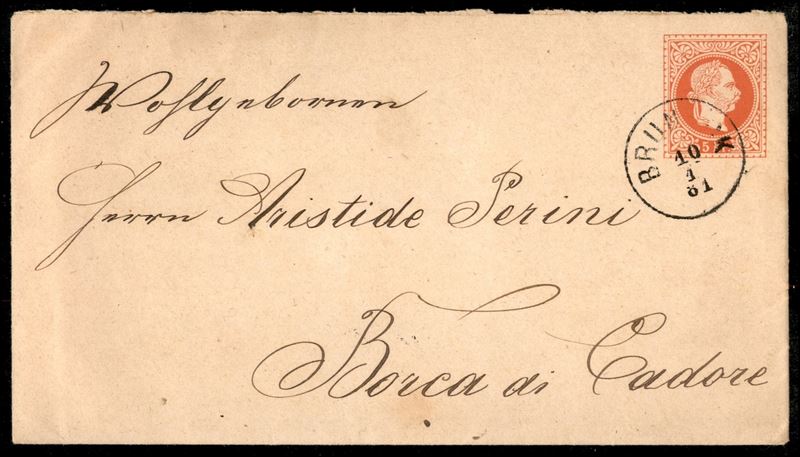 Wohlgebornen
Herrn Aristide Perini
Borca di Cadore
5
10
1
81